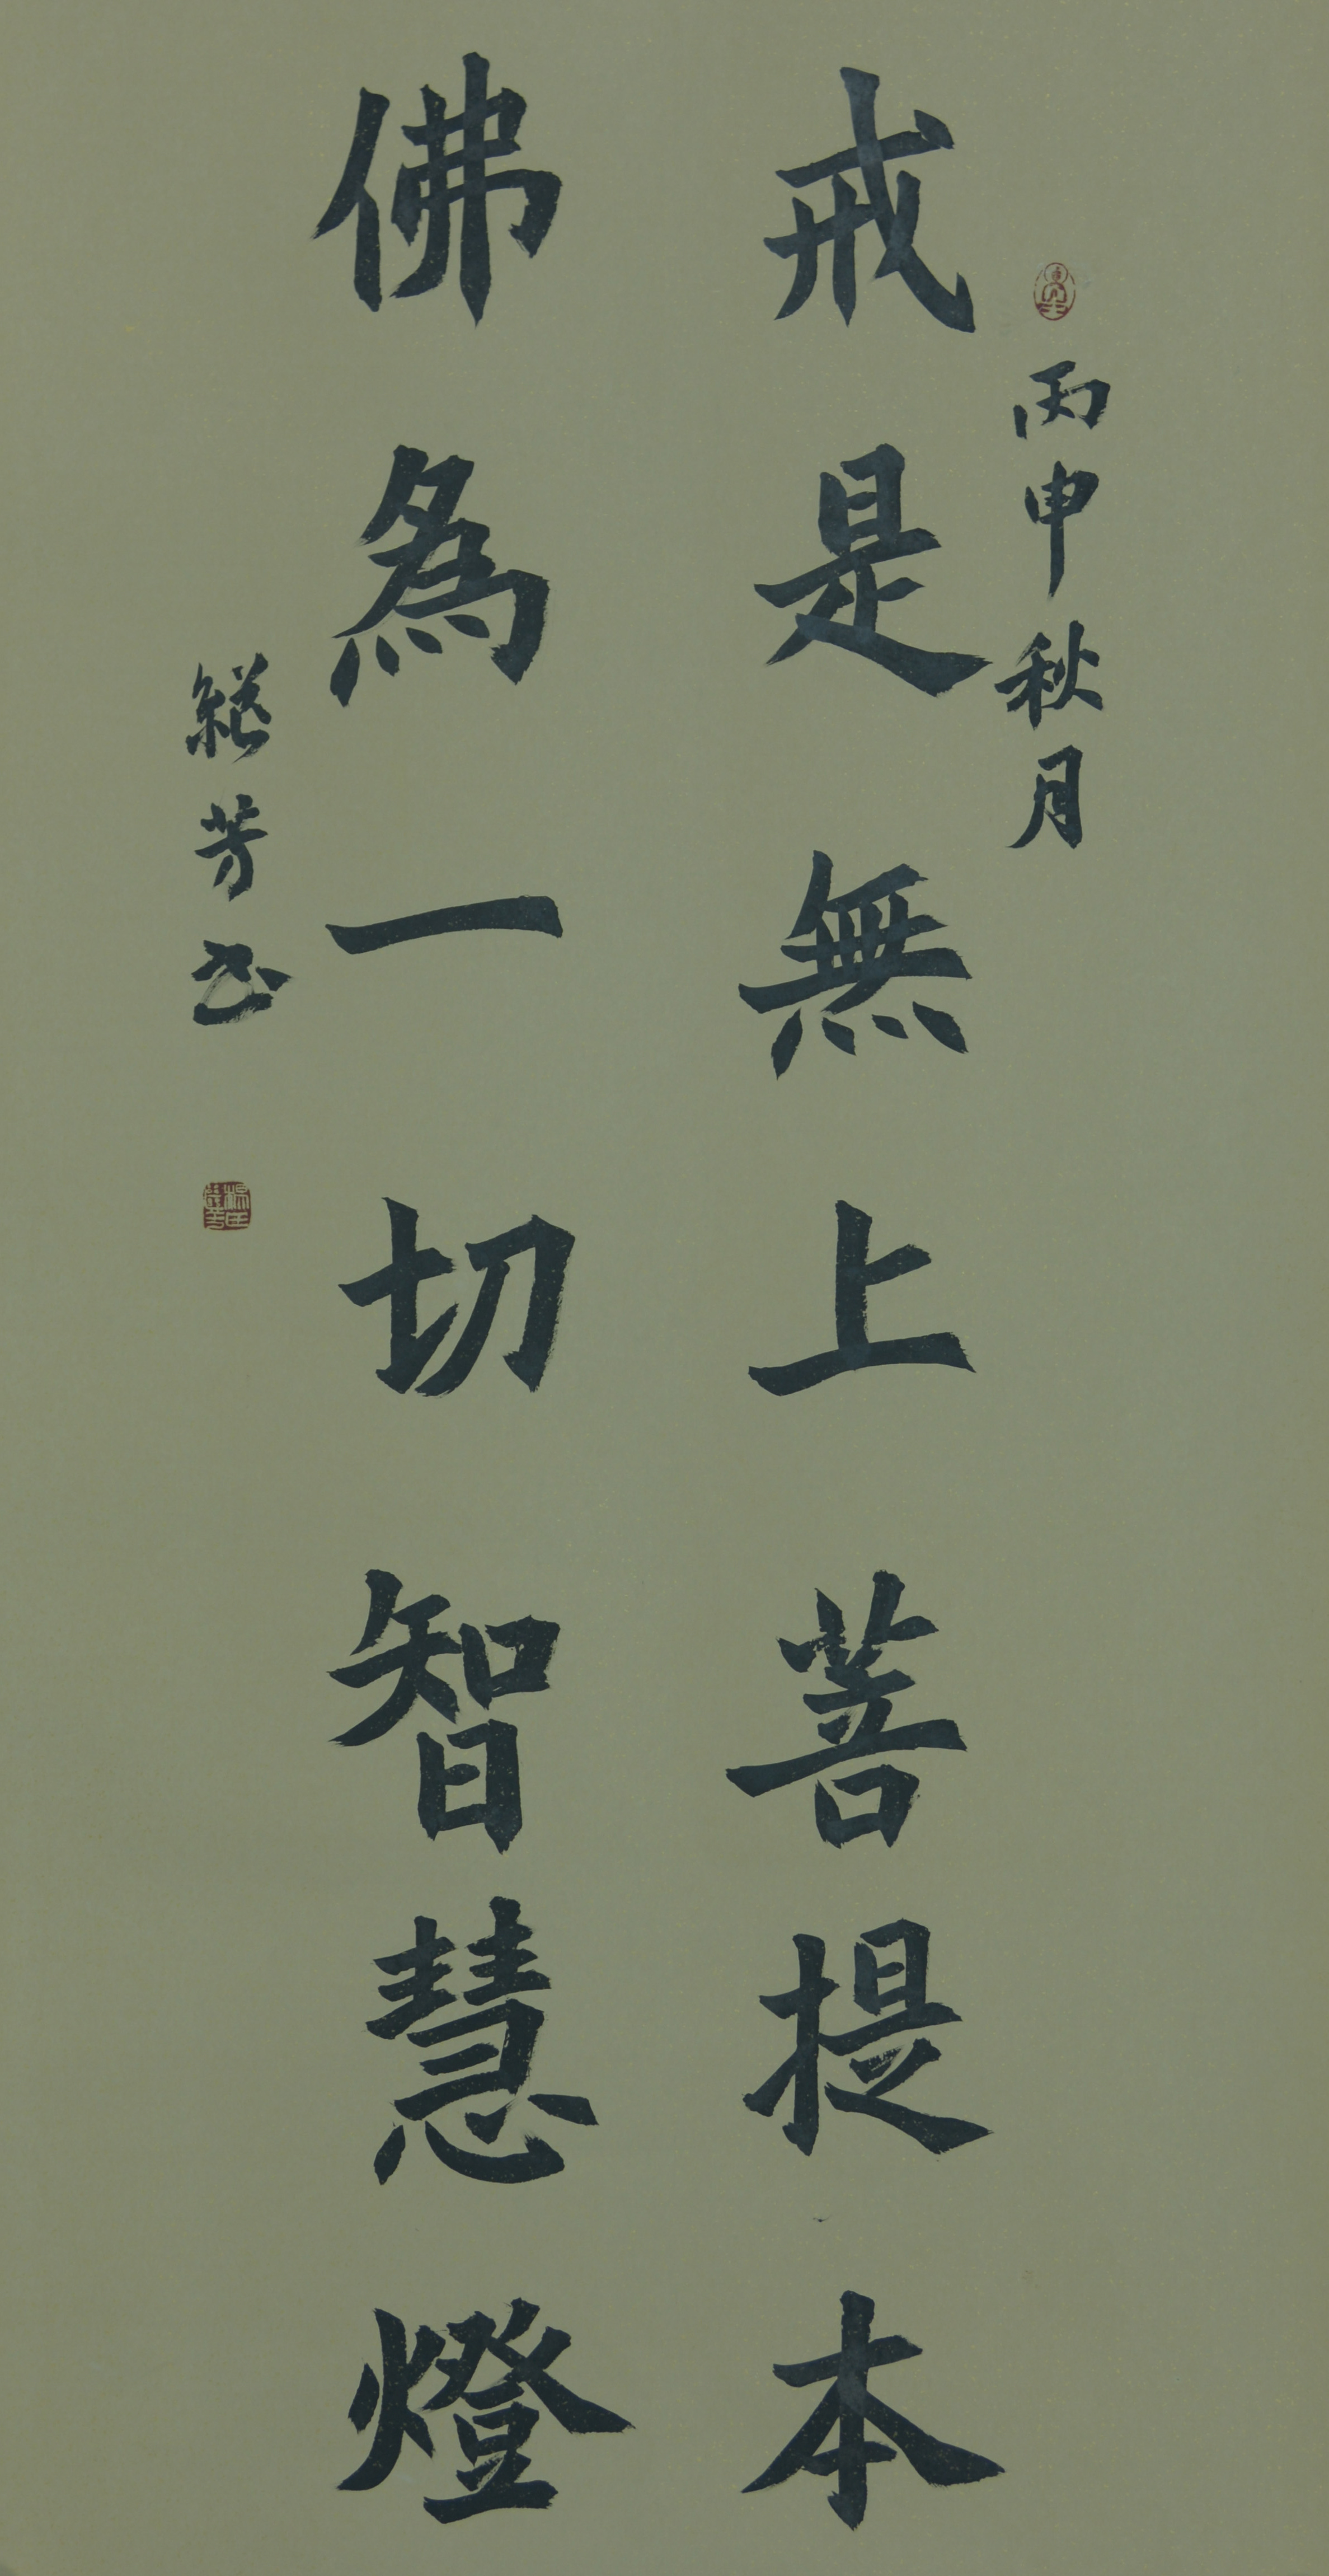 丙申秋月
戒是無上菩提本
佛為一切智慧燈
繼芳书